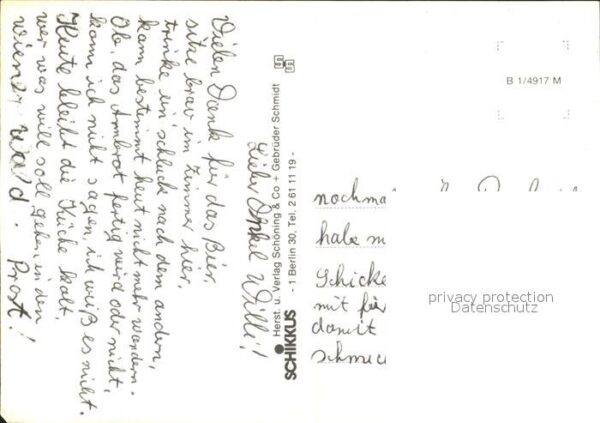 Lieber Onkel Willi!
Vielen Dank für das Bier,
sitze brav im Zimmer hier.
trinke ein schluck nach dem andern,
kann bestimmt heut nicht mehr wandern.
Ob, das Armbrot fertig wird oder nicht,
kann ich nicht sagen, ich weiß es nicht.
Heute bleibt die Küche kalt,
wer was will soll gehen in den
wiener Wald. Prost!
SCHIKKUS
Herst. u. Verlag Schöning & Co + Gebrüder Schmidt
- 1 Berlin 30, Tel. 2 61 11 19 -
B 1/4917 M
nochma
habe m
Schicke
mit für
damit
schmu
privacy protection
Datenschutz